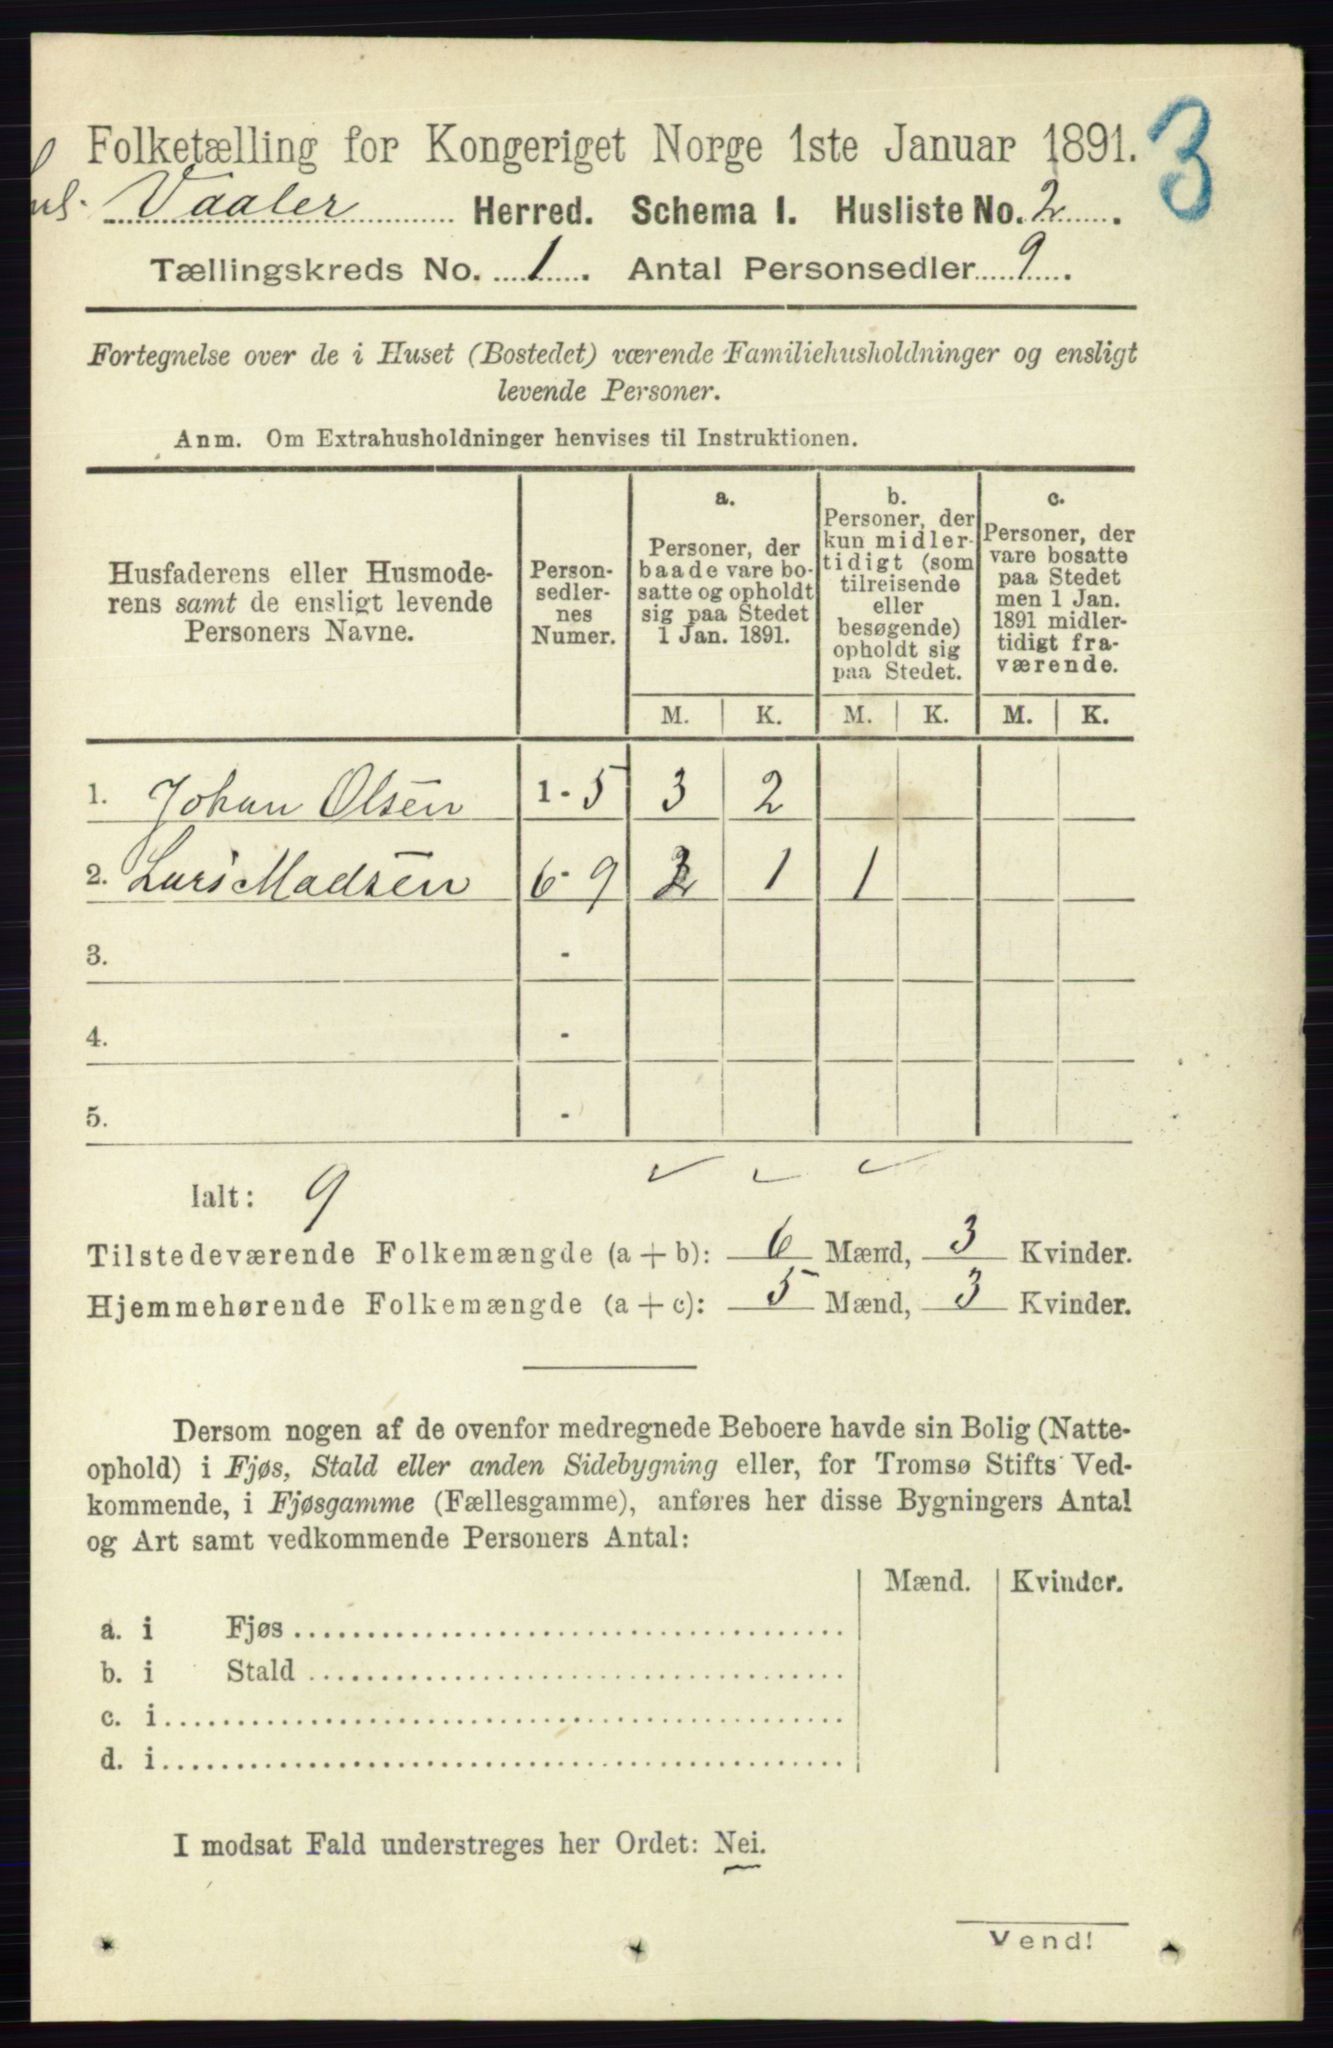 3
Folketælling for Kongeriget Norge 1ste Januar 1891.
Vaaler Herred. Schema 1. Husliste No. 2.
Tællingskreds No. 1. Antal Personsedler 9.
Fortegnelse over de i Huset (Bostedet) værende Familiehusholdninger og ensligt
levende Personer.
Anm. Om Extrahusholdninger henvises til Instruktionen.
Husfaderens eller Husmode-
rens samt de ensligt levende
Personers Navne.
Person-
sedler-
nes
Numer.
a.
Personer, der
baade vare bo-
satte og opholdt
sig paa Stedet
1 Jan. 1891.
b.
Personer, der
kun midler-
tidigt (som
tilreisende
eller
besøgende)
opholdt sig
paa Stedet.
c.
Personer, der
vare bosatte
paa Stedet
men 1 Jan.
1891 midler-
tidigt fra-
værende.
M. K. M. K. M. K.
1. Johan Olsen 1-5 3 2
2. Lars Madsen 6-9 2 1 1
3. -
4. -
5. -
Ialt: 9
Tilstedeværende Folkemængde (a + b): 6 Mænd, 3 Kvinder.
Hjemmehørende Folkemængde (a + c): 5 Mænd, 3 Kvinder.
Dersom nogen af de ovenfor medregnede Beboere havde sin Bolig (Natte-
ophold) i Fjøs, Stald eller anden Sidebygning eller, for Tromsø Stifts Ved-
kommende, i Fjøsgamme (Fællesgamme), anføres her disse Bygningers Antal
og Art samt vedkommende Personers Antal:
Mænd. Kvinder.
a. i Fjøs
b. i Stald
c. i
d. i
I modsat Fald understreges her Ordet: Nei.
Vend!